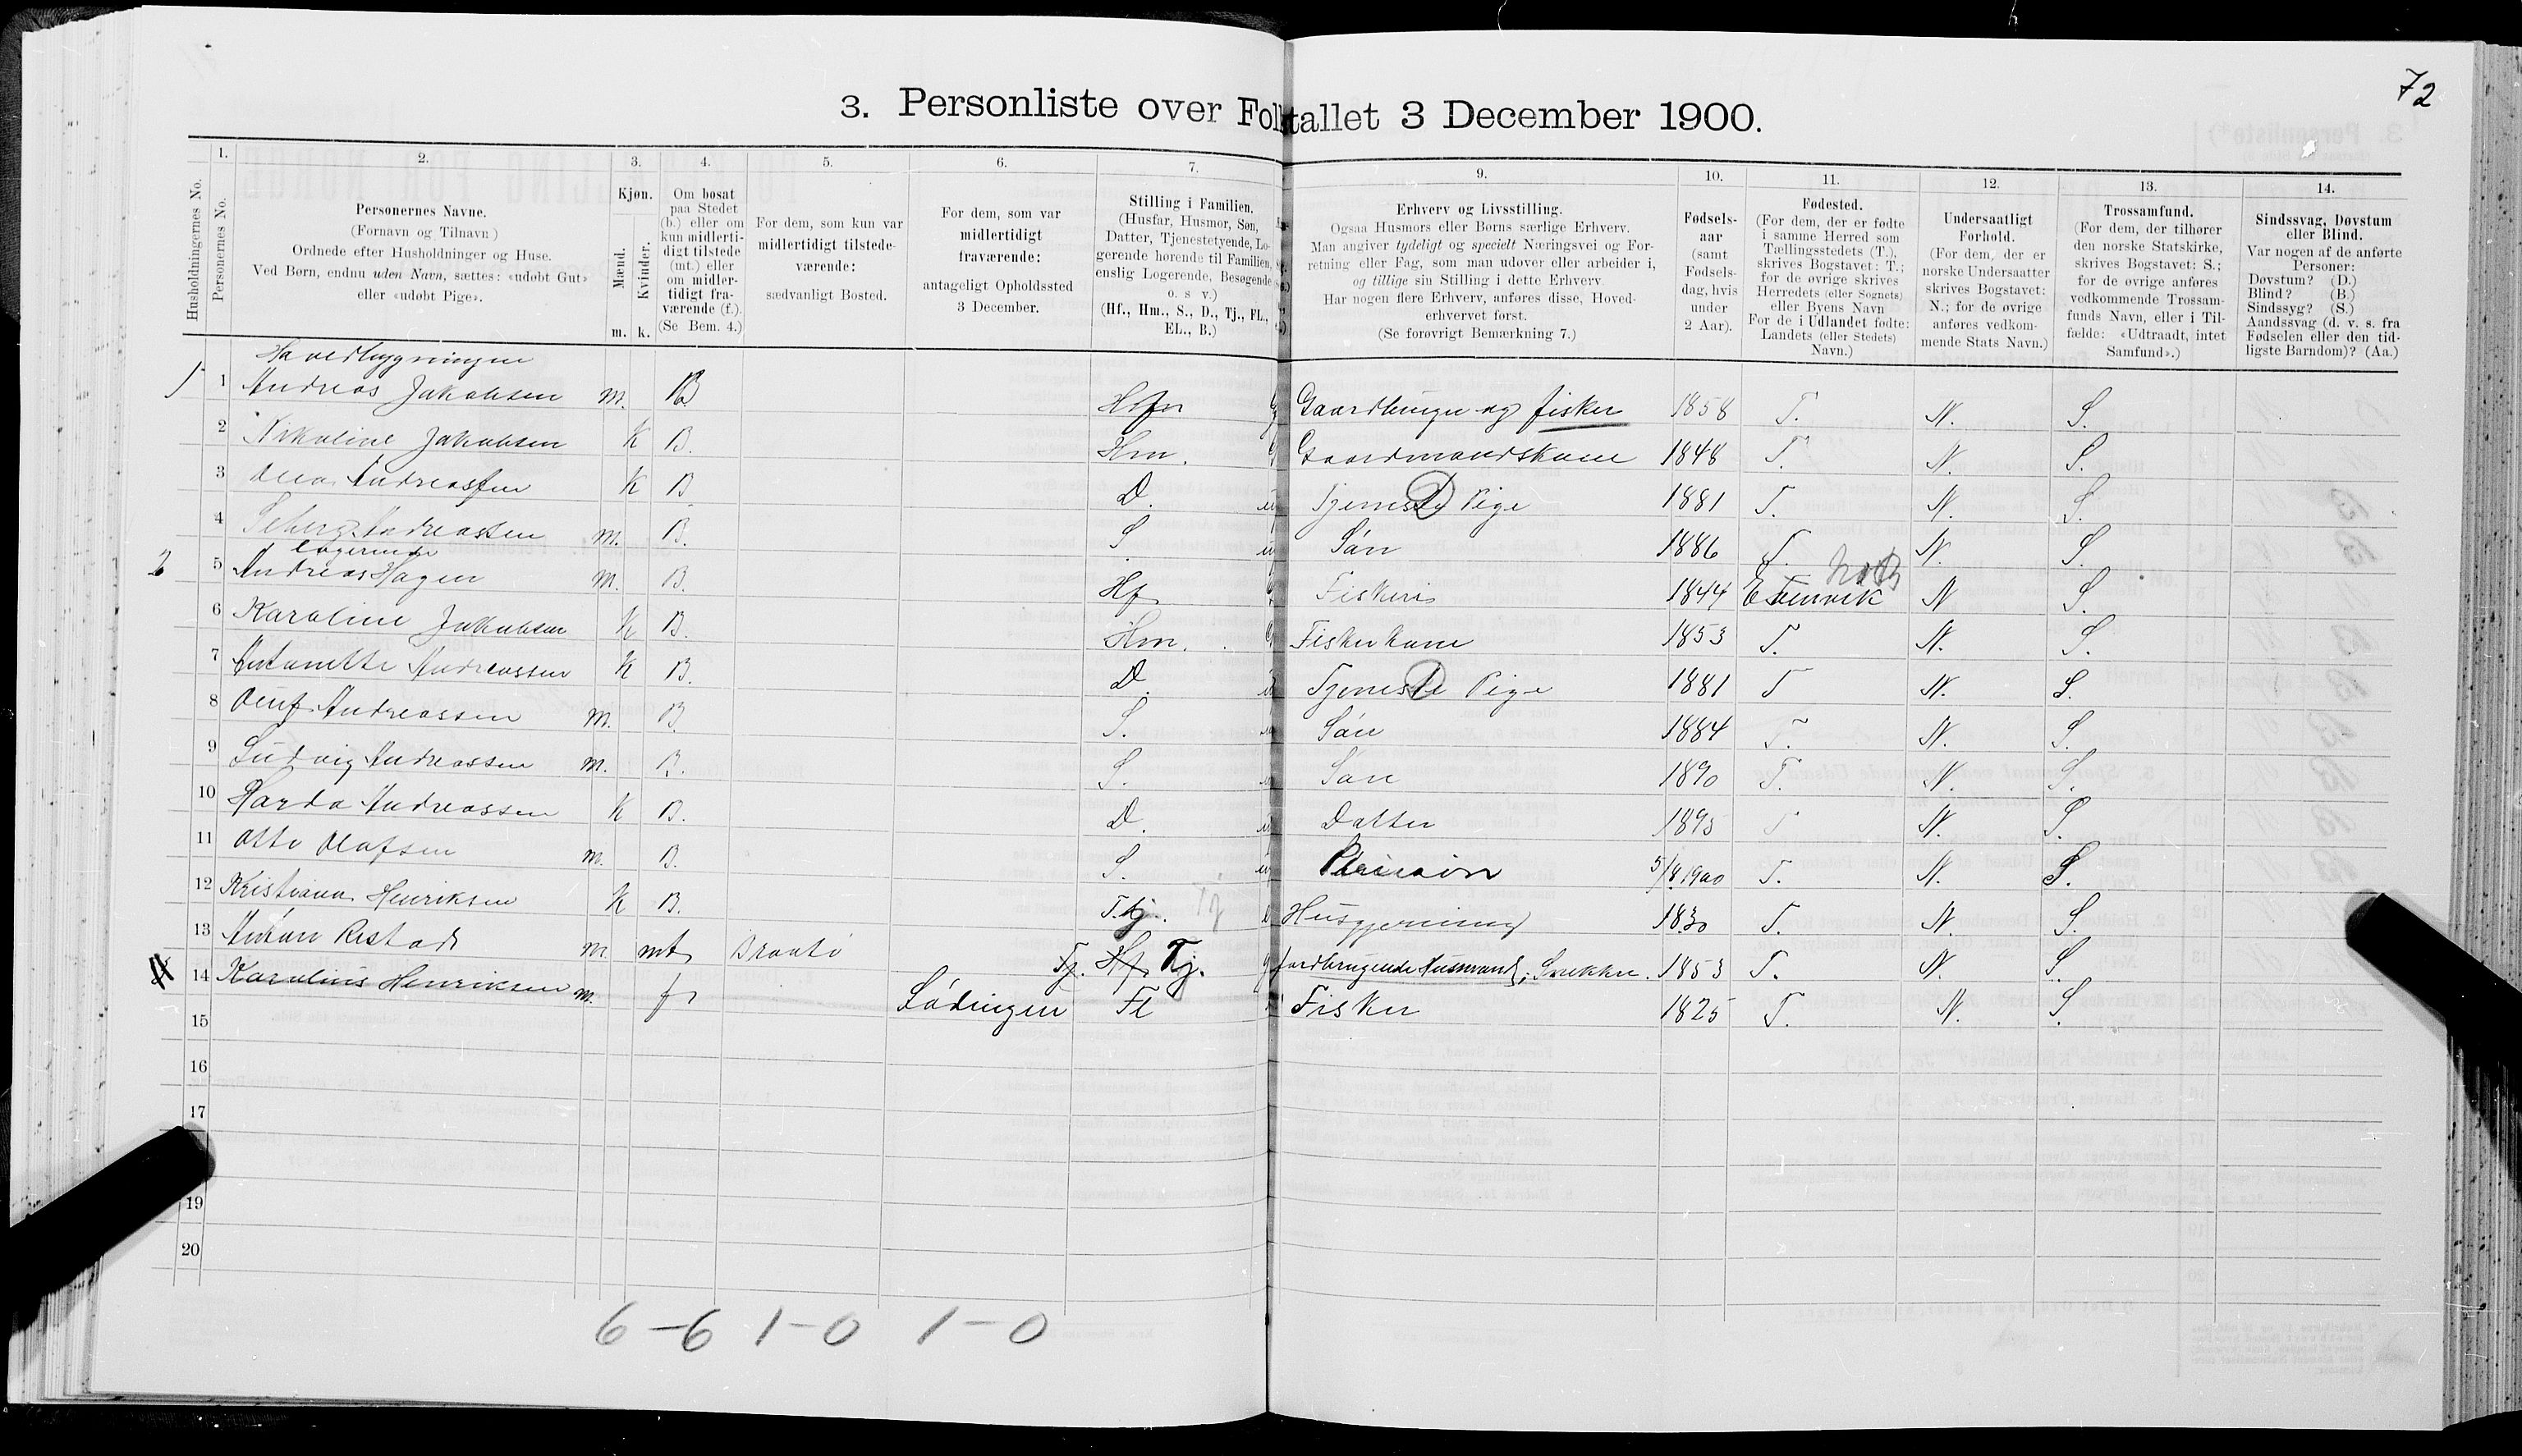 72
3. Personliste over Folketallet 3 December 1900.
Husholdningernes No.
1. Personernes No.
2. Personernes Navne.
(Fornavn og Tilnavn)
Ordnede efter Husholdninger og Huse.
Ved Børn, endnu uden Navn, sættes: «udøbt Gut»
eller «udøbt Pige».
3. Kjøn.
Mænd. Kvinder.
m. k.
4. Om bosat
paa Stedet
(b.) eller om
kun midlerti-
digt tilstede
(mt.) eller
om midler-
tidigt fra-
værende (f.).
(Se Bem. 4.)
5. For dem, som kun var
midlertidigt tilstede-
værende:
sædvanligt Bosted.
6. For dem, som var
midlertidigt
fraværende:
antageligt Opholdssted
3 December.
7. Stilling i Familien.
(Husfar, Husmor, Søn,
Datter, Tjenestetyende, Lo-
gerende hørende til Familien,
enslig Logerende, Besøgende
o. s v.)
(Hf., Hm., S., D., Tj., FL.,
EL., B.)
9. Erhverv og Livsstilling.
Ogsaa Husmors eller Børns særlige Erhverv.
Man angiver tydeligt og specielt Næringsvei og For-
retning eller Fag, som man udøver eller arbeider i,
og tillige sin Stilling i dette Erhverv.
Har nogen flere Erhverv, anføres disse, Hoved-
erhvervet først.
(Se forøvrigt Bemærkning 7.)
10. Fødsels-
aar
(samt
Fødsels-
dag, hvis
under
2 Aar).
11. Fødested.
(For dem, der er fødte
i samme Herred som
Tællingsstedets (T.),
skrives Bogstavet: T.;
for de øvrige skrives
Herredets (eller Sognets)
eller Byens Navn
For de i Udlandet fødte:
Landets (eller Stedets)
Navn.)
12. Undersaatligt
Forhold.
(For dem, der er
norske Undersaatter
skrives Bogstavet:
N.; for de øvrige
anføres vedkom-
mende Stats Navn.)
13. Trossamfund.
(For dem, der tilhører
den norske Statskirke,
skrives Bogstavet: S.;
for de øvrige anføres
vedkommende Trossam-
funds Navn, eller i Til-
fælde: «Udtraadt, intet
Samfund».)
14. Sindssvag, Døvstum
eller Blind.
Var nogen af de anførte
Personer:
Døvstum? (D.)
Blind? (B.)
Sindssyg? (S.)
Aandssvag (d. v. s. fra
Fødselen eller den tid-
ligste Barndom)? (Aa.)
Hovedbygningen
1 1 Andreas Jakobsen m. B Hf Gaardbruger og fisker 1858 T. N. S.
2 Nikoline Jakobsen K B. Hm. Gaardmandskone 1848 T. N. S.
3 Andreassen K B D. Tjeneste Pige D 1881 T. N. S.
4 Andreassen m. B. S. Søn 1886 T. N. S.
logerende
2 5 Andreas Hagen m. B. Hf Fiskeri 1844 Evenvik N S.
6 Karoline Jakobsen K B. Hm. Fisker kone 1853 T. N. S.
7 Antonette Andreassen K B. D. Tjeneste Pige D 1881 T N. S.
8 Oluf Andreassen m. B. S. Søn 1884 T. N. S.
9 Ludvig Andreassen m. B. S. Søn 1890 T. N. S.
10 Harda Andreassen K B. D. Datter 1895 T N. S.
11 Otto Olafsen m. B. S. 5/8 1900 T. N. S.
12 Kristiana Henriksen K B. Tj. Tj Husgjerning 1830 T. N. S.
13 Ristad m. mt Tj. Hf Tj. jordbrugende Husmand, Snekker. 1853 T. N. S.
14 Karolius Henriksen m. f Lødingen Fl Fisker 1825 T. N. S.
15
16
17
19
20
6 – 6 1 – 0 1 – 0